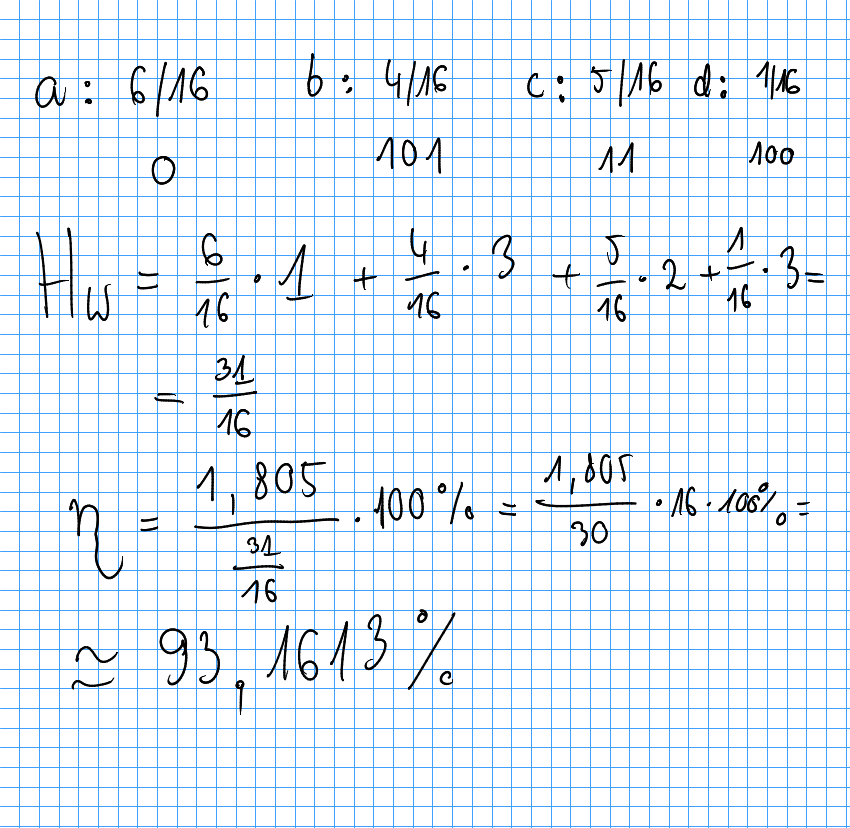 a: 6/16 b: 4/16 c: 5/16 d: 1/16
0 101 11 100
H_w = 6/16 · 1 + 4/16 · 3 + 5/16 · 2 + 1/16 · 3 =
= 31/16
η = 1,805 / (31/16) · 100% = 1,805/30 · 16 · 100% =
≈ 93,1613 %